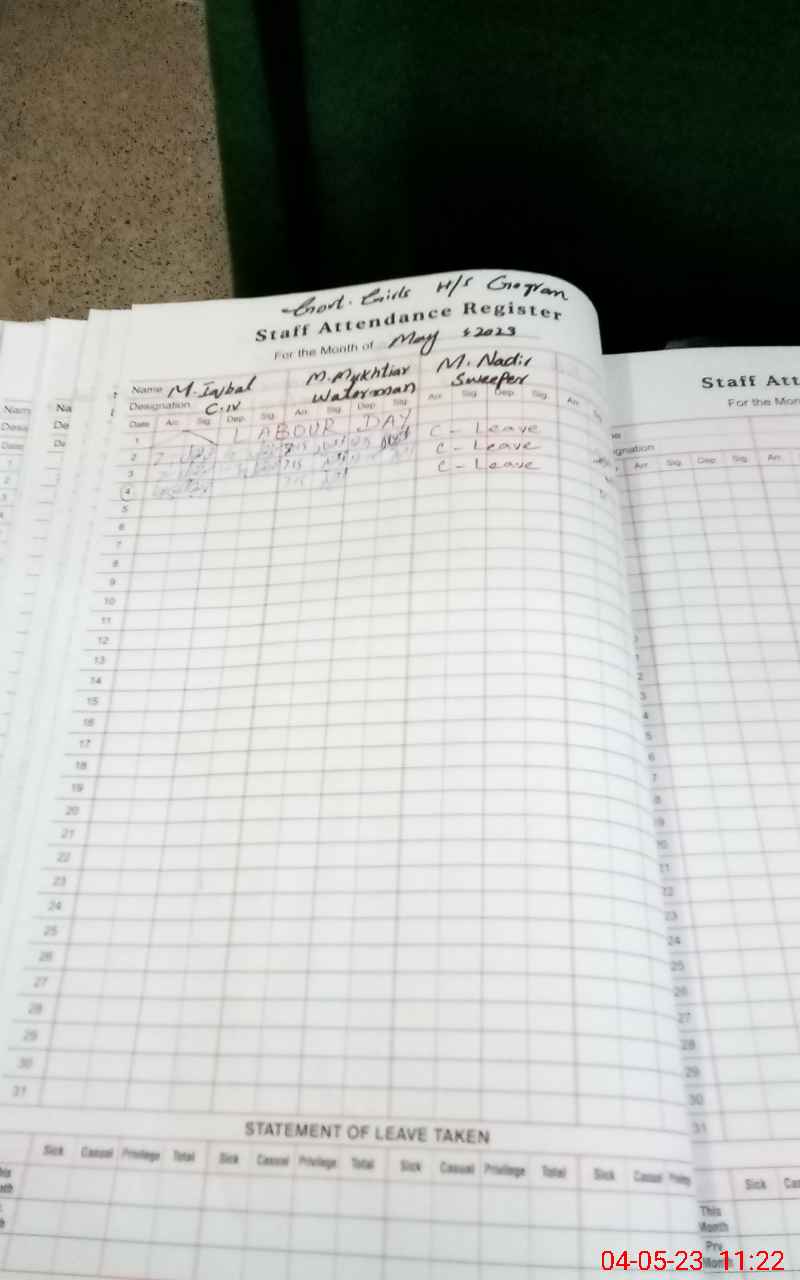 Govt. Girls H/S Gogran
Staff Attendance Register
For the Month of May 2023
Name M. Iqbal M. Mukhtiar M. Nadir
Designation C.IV Waterman Sweeper
Date Arr. Sig. Dep. Sig. Arr. Sig. Dep. Sig. Arr. Sig. Dep. Sig. Arr.
1 LABOUR DAY
2 C - Leave
3 C - Leave
4 C - Leave
5
6
7
8
9
10
11
12
13
14
15
16
17
18
19
20
21
22
23
24
25
26
27
28
29
30
31
STATEMENT OF LEAVE TAKEN
Sick Casual Privilege Total Sick Casual Privilege Total Sick Casual Privilege Total Sick Casual
Staff Att
For the Mon
Arr. Sig. Dep. Sig. Arr.
23
24
25
26
27
28
29
30
31
Sick Cas
This Month
Prv. Month
04-05-23 11:22